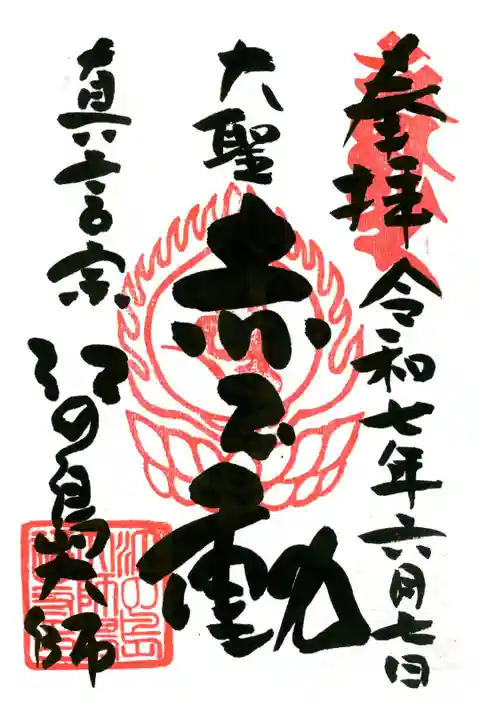 奉拝 令和七年六月七日
大聖
赤不動
真言宗
江の島大師